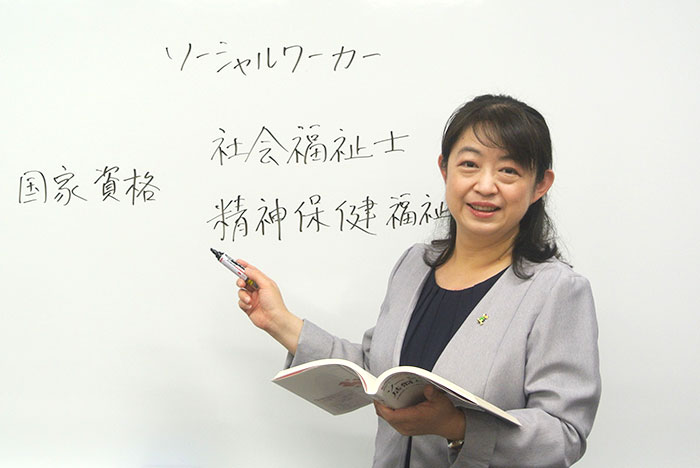 ソーシャルワーカー
社会福祉士
国家資格
精神保健福祉